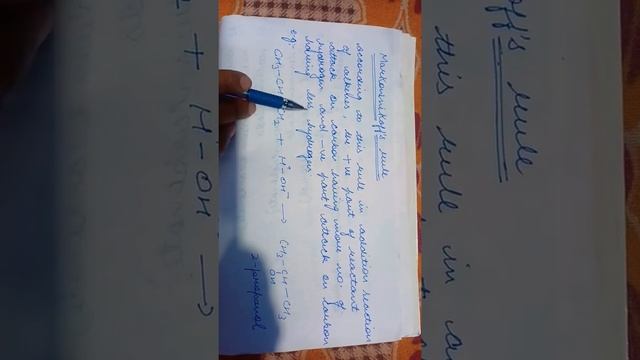 Markownikoff's rule
according to this rule in addition reaction
of alkenes, the +ve part of reactant
attack on carbon having more no. of
hydrogen and -ve part attack on carbon
having less hydrogen.
eg.
CH3-CH=CH2 + H+-OH- → CH3-CH-CH3
OH
2-propanol